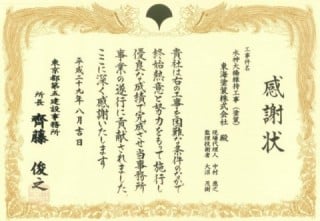 感謝状
工事件名
水神大橋維持工事(塗装)
東海塗装株式会社 殿
現場代理人 中村 恵之
監理技術者 大沼 茂樹
貴社は右の工事を困難な条件のなかで
終始熱意と努力をもって施行し
優良な成績で完成させ当事務所
事業の遂行に貢献されました
ここに深く感謝いたします
平成二十九年八月吉日
東京都第五建設事務所
所長 齊藤 俊之